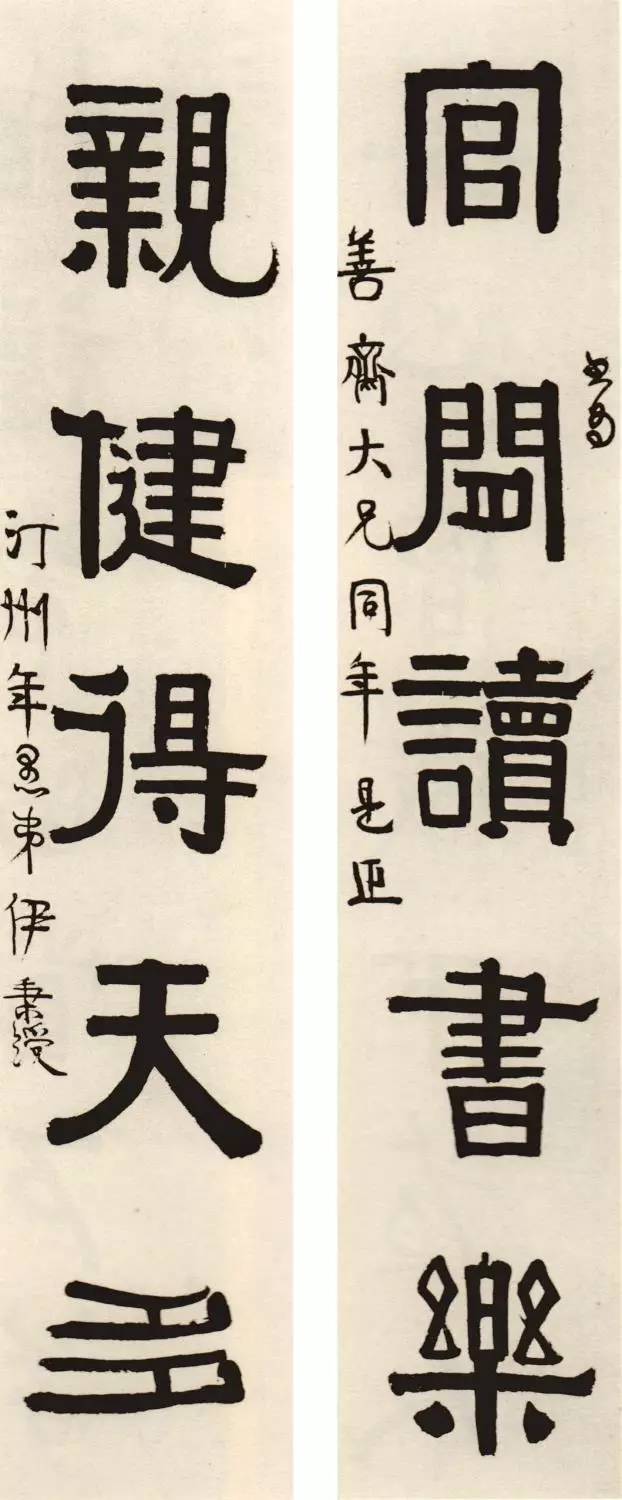 書爲
官閒讀書樂
善齋大兄同年是正
親健得天多
汀州年愚弟伊秉綬